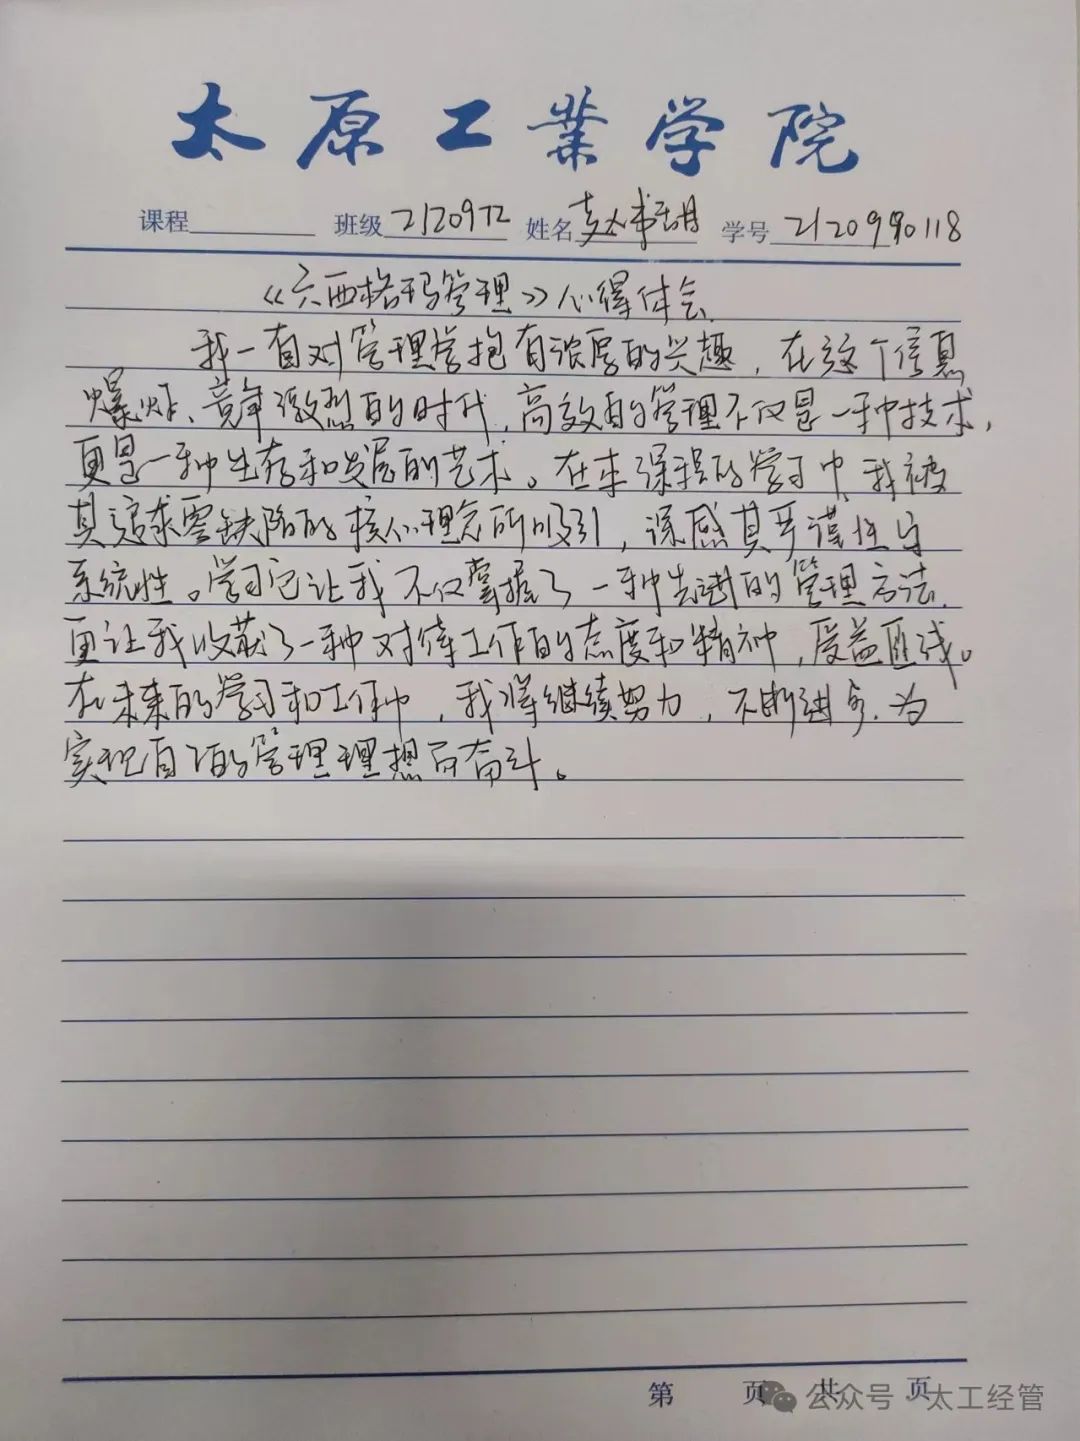 太原工業学院
课程 班级 2120972 姓名 学号 2120990118
《六西格玛管理》心得体会
我一直对管理学抱有浓厚的兴趣,在这个信息
爆炸、竞争激烈的时代,高效的管理不仅是一种技术,
更是一种生存和发展的艺术。在本课程的学习中,我被
其追求零缺陷的核心理念所吸引,深感其严谨性与
系统性。学习它让我不仅掌握了一种先进的管理方法,
更让我收获了一种对待工作的态度和精神,受益匪浅。
在未来的学习和工作中,我将继续努力,不断进步,为
实现自己的管理理想而奋斗。
第 页 共 页
公众号·太工经管